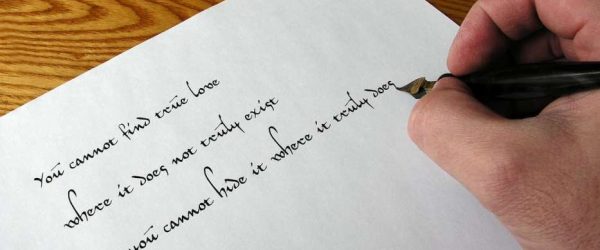 you cannot find true love
where it does not truly exist
you cannot hide it where it truly does